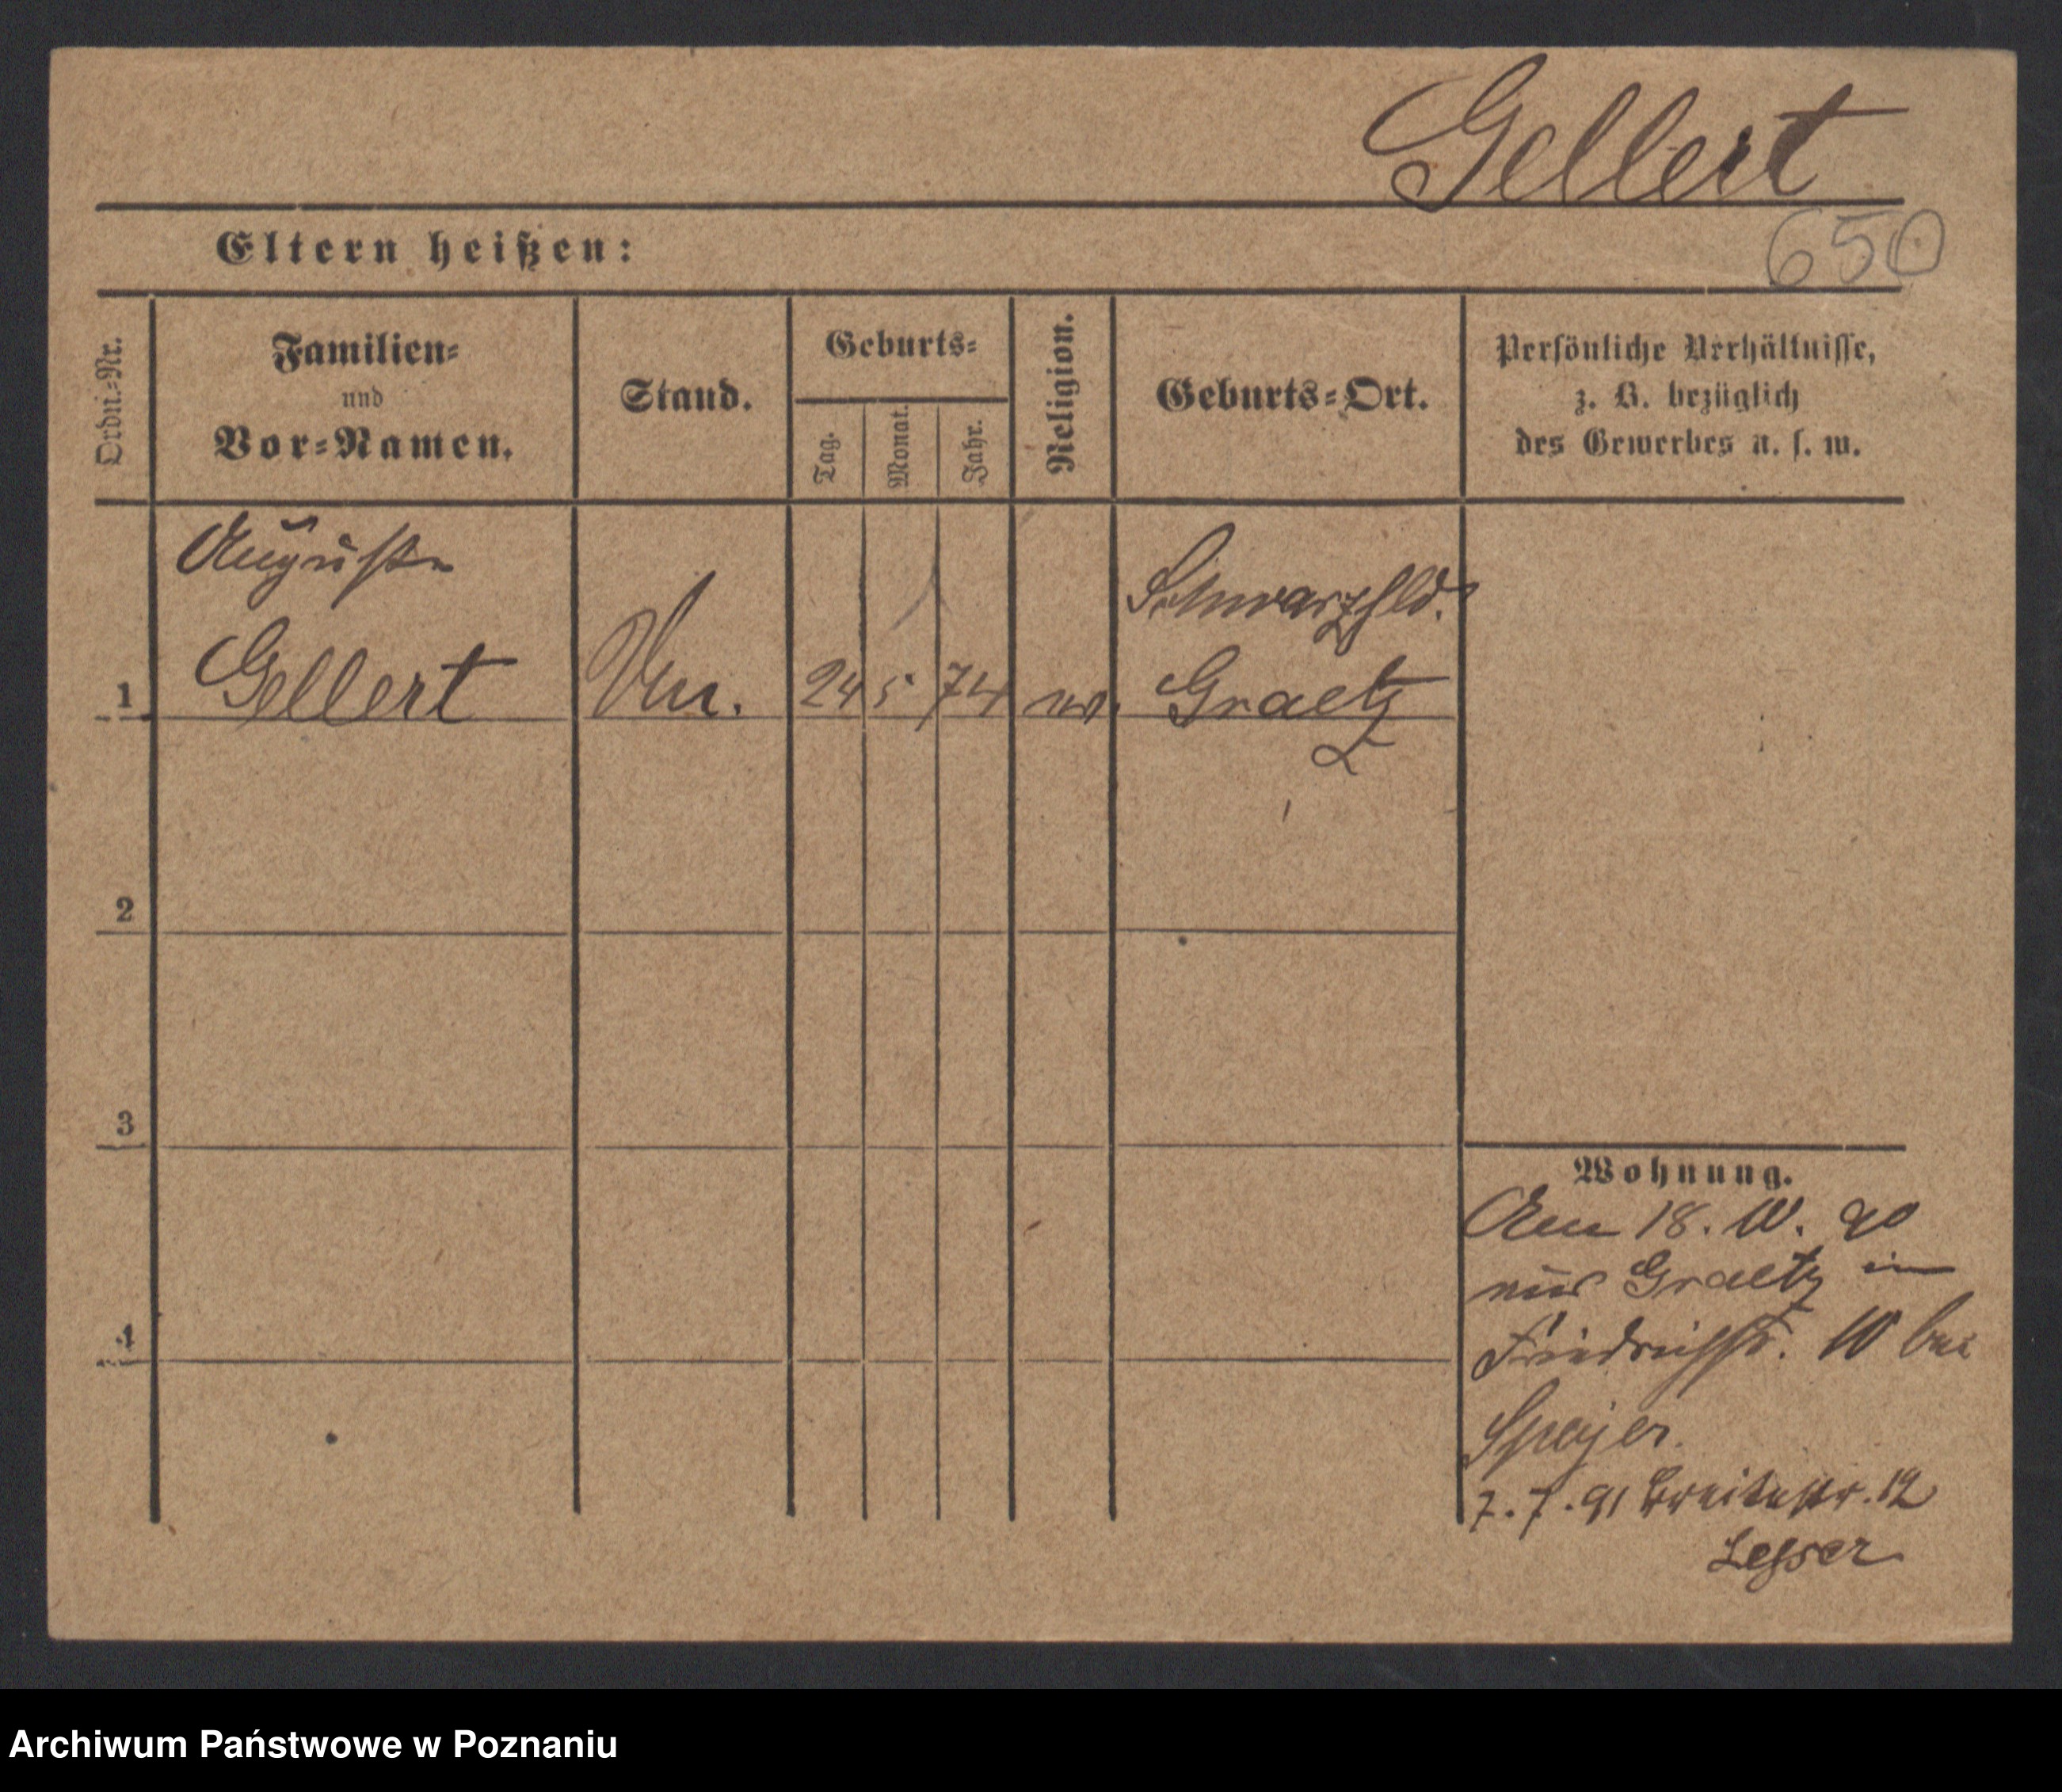 Gellert
650
Eltern heißen:
Ordn.-Nr.
Familien-
und
Vor-Namen.
Stand.
Geburts-
Tag.
Monat.
Jahr.
Religion.
Geburts-Ort.
Persönliche Verhältnisse,
z. B. bezüglich
des Gewerbes u. s. w.
Auguste
Schwarzhld.
1 Gellert 24 5 74 Graetz
2
3
4
Wohnung.
Am 18. 10. 90
aus Graetz in
Friedrichstr. 10 bei
Speyer.
7.7.91 Breitestr. 12
Lesser
Archiwum Państwowe w Poznaniu